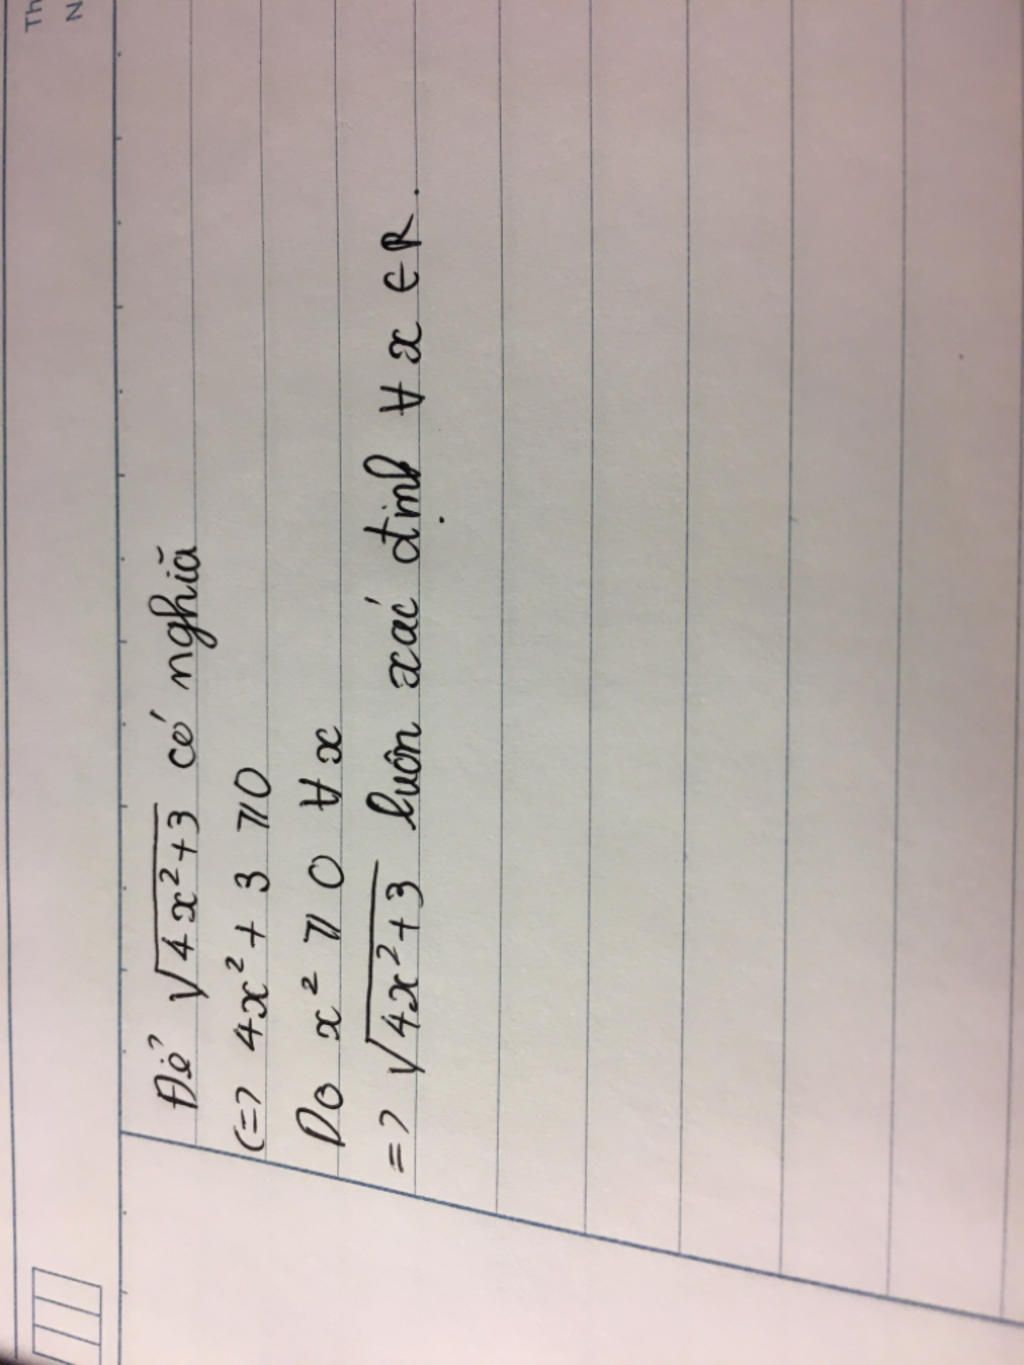 Th
N
Để √4x²+3 có nghĩa
(=> 4x² + 3 ≥ 0
Do x² ≥ 0 ∀x
=> √4x²+3 luôn xác định ∀x ∈ R.